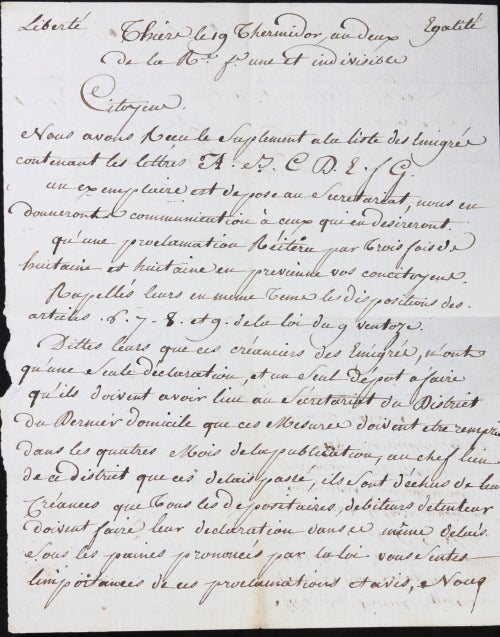 Liberté Thiers le 19 Thermidor, an deux Egalité
de la Rq. f. une et indivisible
Citoyens.
Nous avons Recu le Suplement a la liste des Emigrés
contenant les lettres A. B. C D. E. f G.
un exemplaire est depose au Secretariat, nous en
donneront communication à ceux qui en desireront.
qu'une proclamation Réiteru par Trois fois de
huitaine et huitaine en previenne vos concitoyens.
Rapellés leurs en meme Tems les dispositions des
articles 6. 7. 8. et 9. de la loi du 9 ventoze.
Dittes leurs que ces créanciers des Emigrés, n'ont
qu'une Seule declaration, et un Seul dépot a faire
qu'ils doivent avoir lieu au Secretariat du District
du Dernier domicile que ces Mesures doivent etre rempries
dans les quatres Mois de la publication, au chef lieu
de ce district que ces delais passé, ils Sont déchus de leur
Créances que Tous les depositaires, debiteurs detenteur
doivent faire leur declaration dans ce même delais
Sous les paines pronocés par la loi vous Sentes
limportances de ces proclamations et avis, Nous